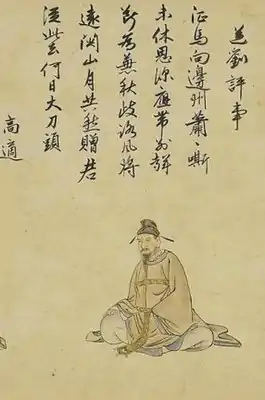 送劉評事
征馬向邊州蕭〻嘶
未休思深應帶別聲
斷為兼秋歧路風將
遠關山月共愁贈君
從此去何日大刀頭
高適